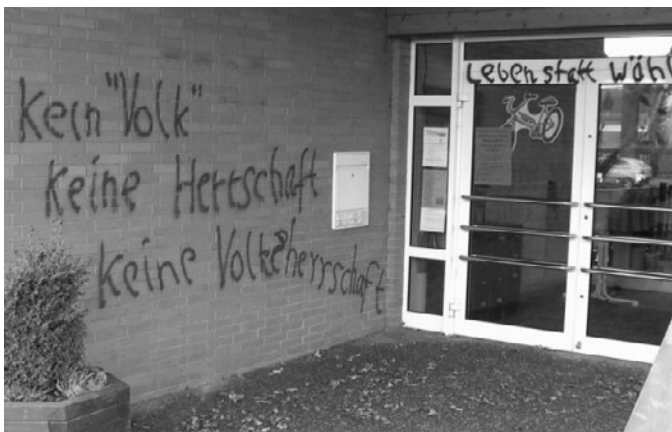 Kein "Volk"
keine Herrschaft
keine Volksherrschaft
Leben statt wähl